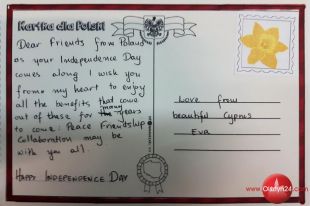 Kartka dla Polski
Dear Friends from Poland
as your Independence Day
comes along I wish you
from my heart to enjoy
all the benefits that come
out of these for many years
to come! Peace Friendship
Collaboration may be
with you all.
HAPPY INDEPENDENCE DAY
Love from
beautiful Cyprus
Eva
www.Olsztyn24.com